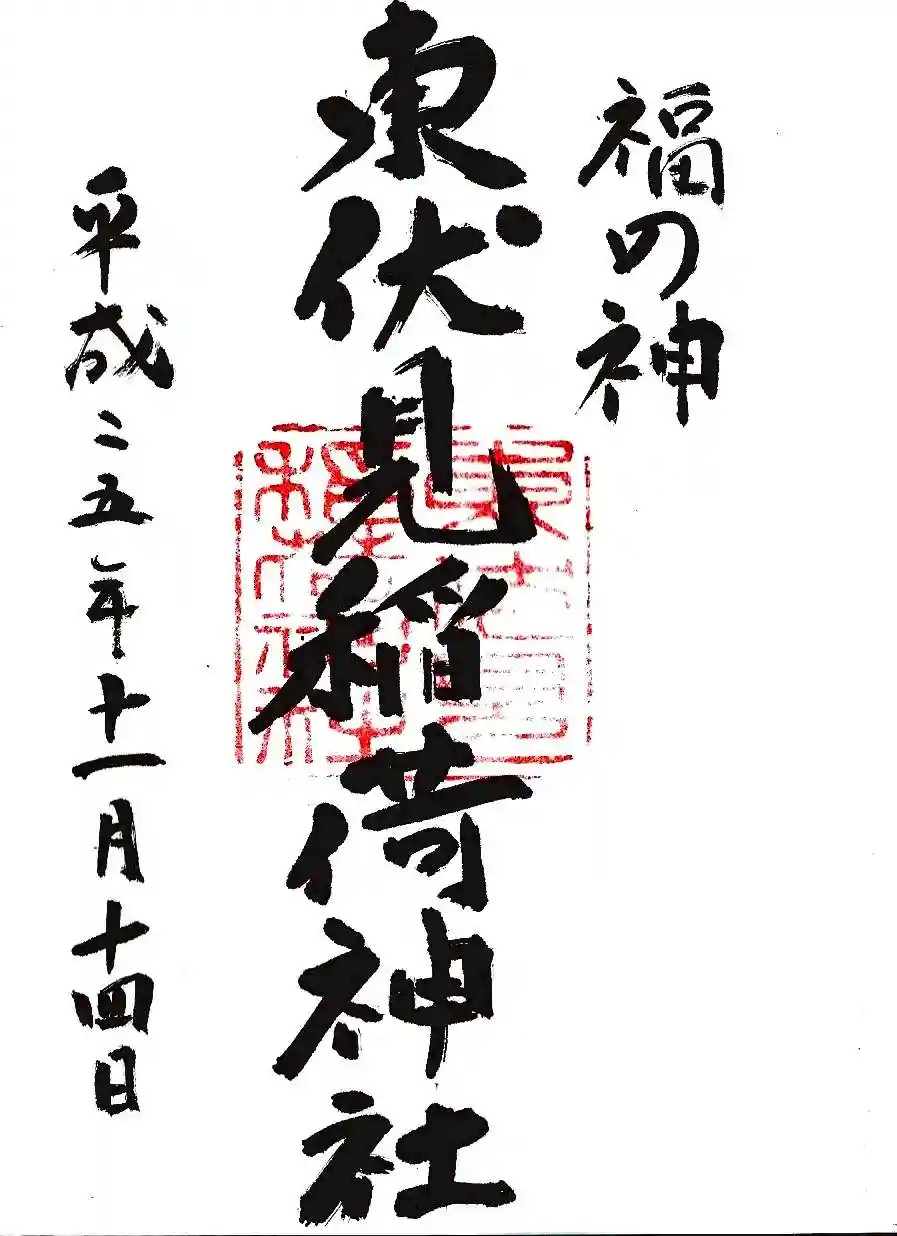 福の神
東伏見稲荷神社
平成二五年十一月十四日
東伏見
稲荷神社